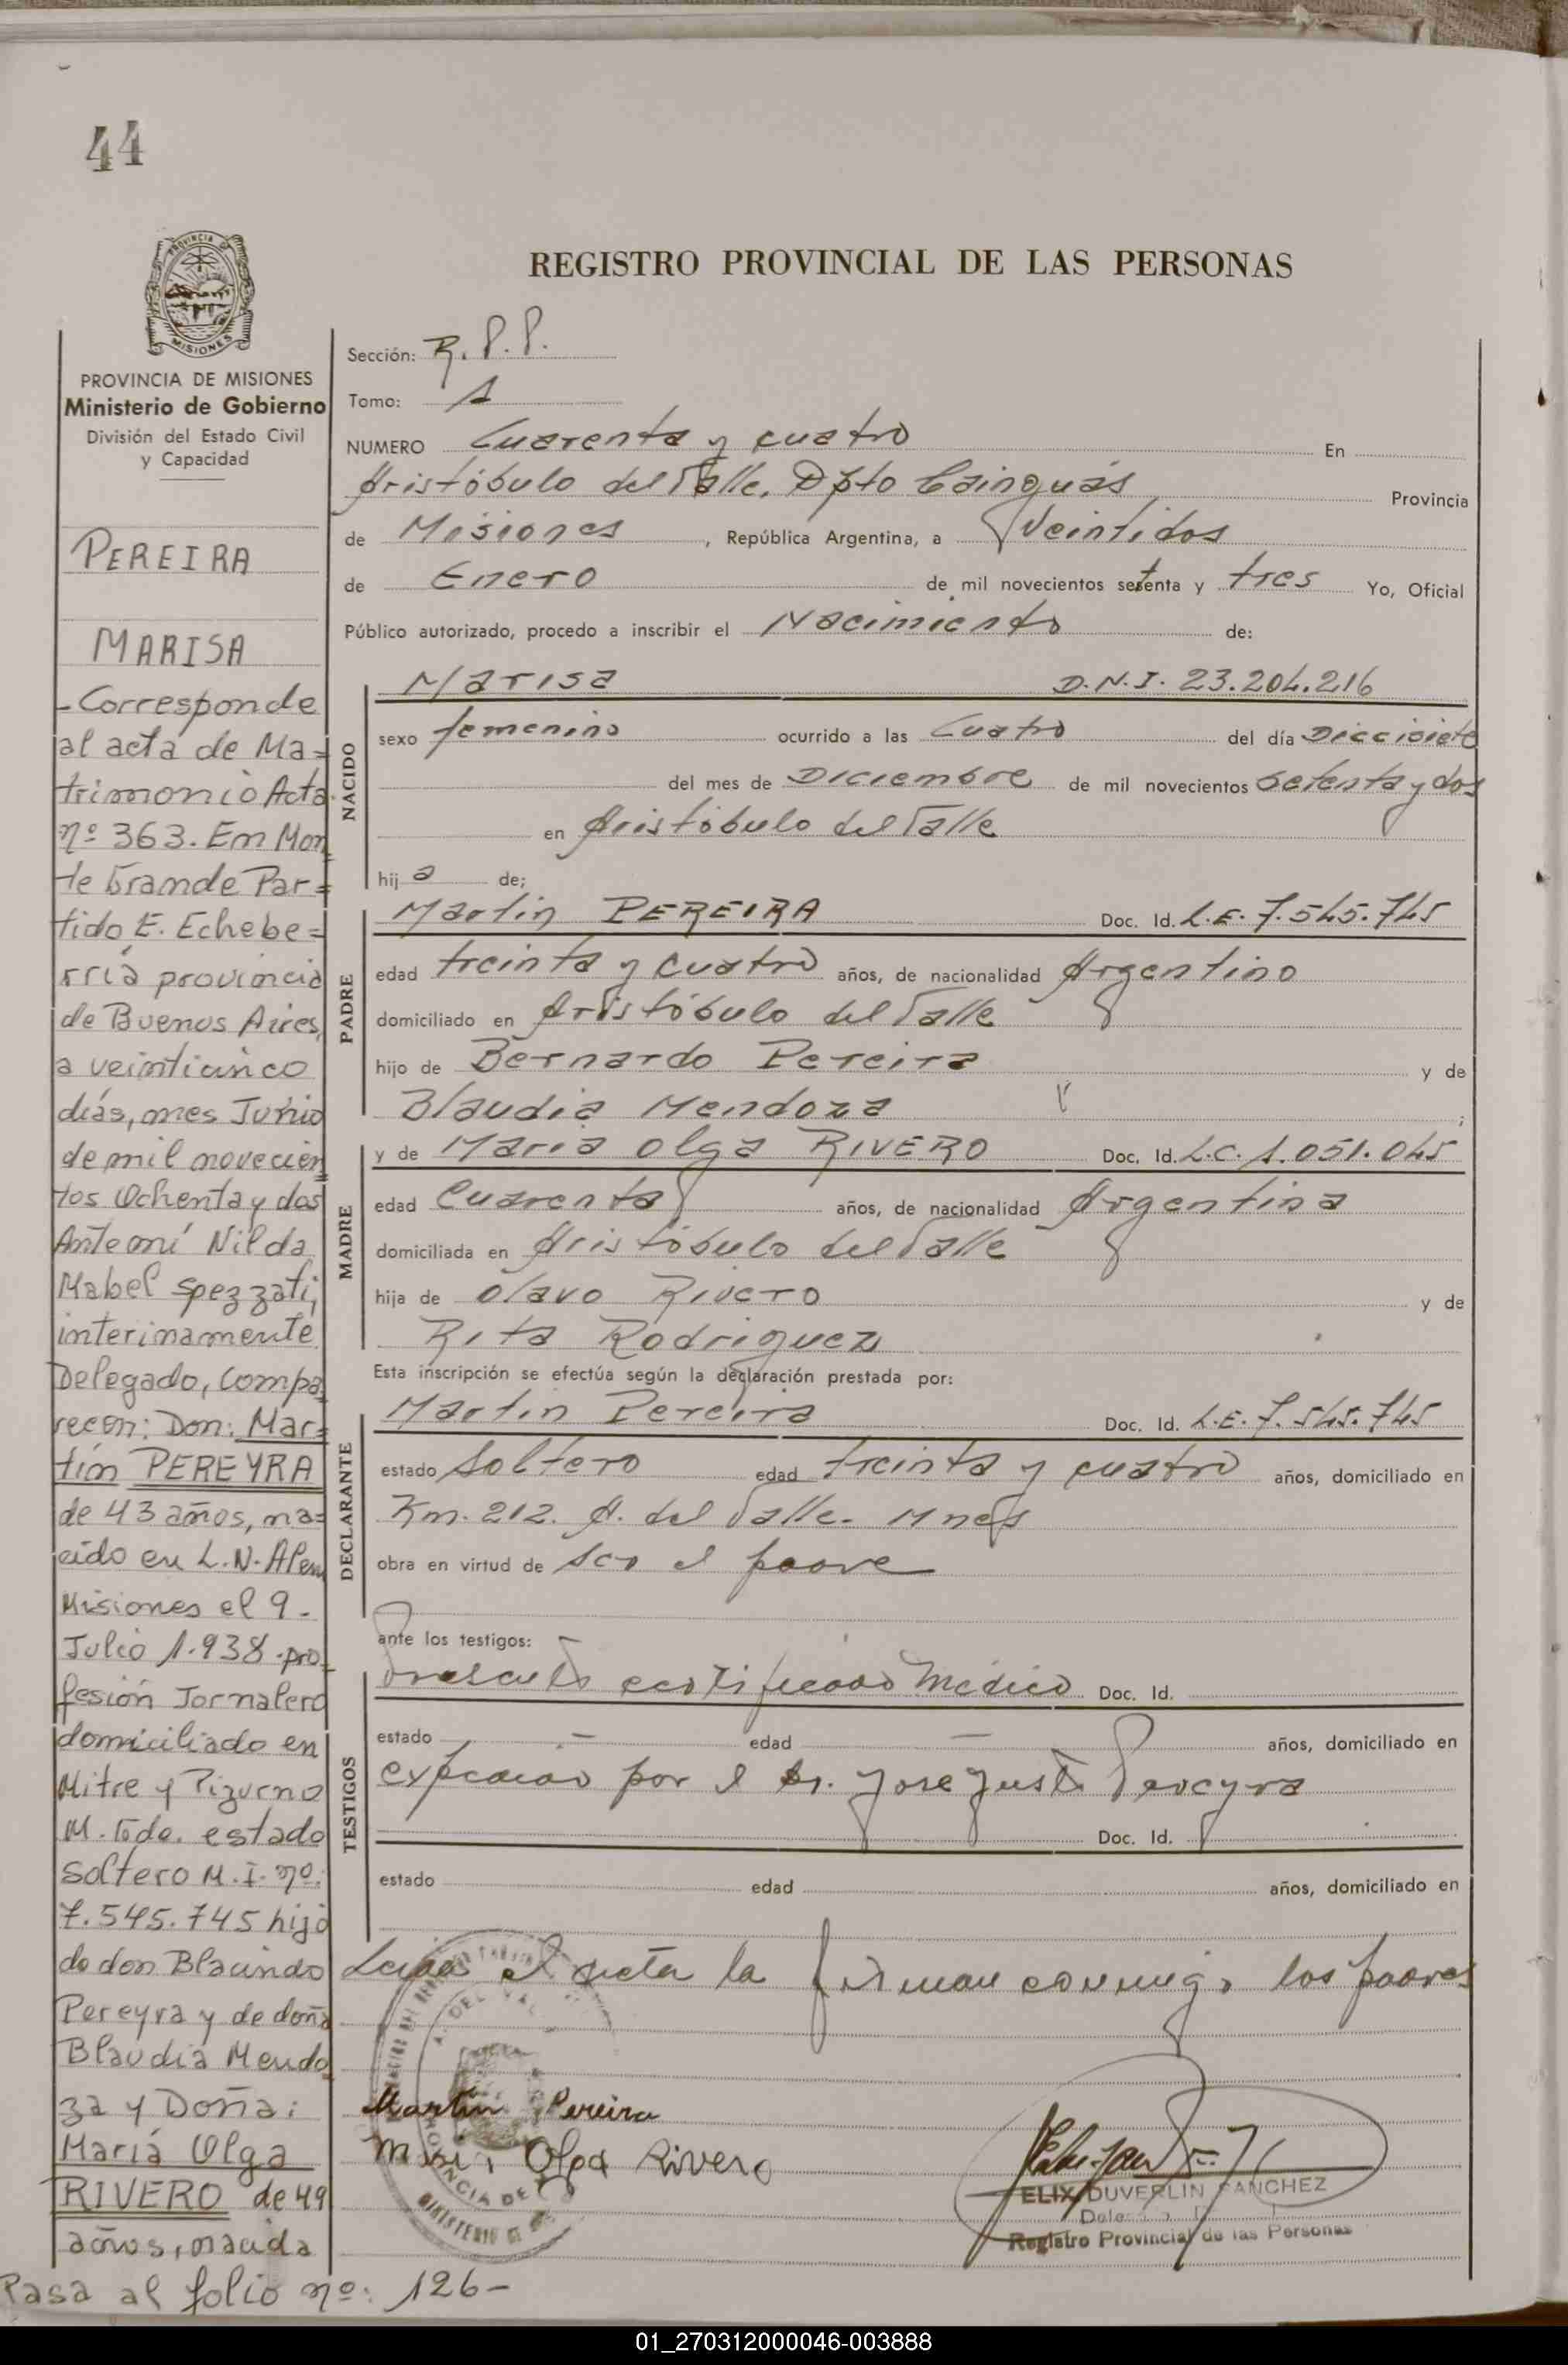 44
PROVINCIA DE
MISIONES
PROVINCIA DE MISIONES
Ministerio de Gobierno
División del Estado Civil
y Capacidad
PEREIRA
MARISA
- Corresponde
al acta de Ma=
trimonio Acta
nº 363. En Mon
te Grande Par=
tido E. Echebe=
rría provincia
de Buenos Aires,
a veinticinco
días, mes Junio
de mil novecien
tos Ochenta y dos
Ante mí Nilda
Mabel Spezzati,
interinamente
Delegado, Compa
recen: Don: Mar=
tín PEREYRA
de 43 años, na=
cido en L.N. Alem
Misiones el 9-
Julio 1.938 - pro
fesión Jornalero
domiciliado en
Mitre y Pizurno
M. Gde. estado
soltero M.I. nº:
7.545.745 hijo
de don Blacindo
Pereyra y de doña
Blaudia Mendo
za y Doña:
María Olga
RIVERO de 49
años, nacida
Pasa al folio nº: 126-
REGISTRO PROVINCIAL DE LAS PERSONAS
Sección: R.P.P.
Tomo: 1
NUMERO Cuarenta y cuatro En
Aristóbulo del Valle. Dpto Cainguás Provincia
de Misiones, República Argentina, a Veintidos
de Enero de mil novecientos setenta y tres Yo, Oficial
Público autorizado, procedo a inscribir el Nacimiento de:
NACIDO
Marisa D.N.I. 23.204.216
sexo femenino ocurrido a las Cuatro del día Diecisiete
del mes de Diciembre de mil novecientos Setenta y dos
en Aristóbulo del Valle
hija de;
PADRE
Martin PEREIRA Doc. Id. L.E. 7.545.745
edad treinta y cuatro años, de nacionalidad Argentino
domiciliado en Aristóbulo del Valle
hijo de Bernardo Pereira y de
Blaudia Mendoza ;
MADRE
y de Maria Olga RIVERO Doc. Id. L.C. 1.051.045
edad Cuarenta años, de nacionalidad Argentina
domiciliada en Aristóbulo del Valle
hija de Olavo Rivero y de
Rita Rodriguez
Esta inscripción se efectúa según la declaración prestada por:
DECLARANTE
Martin Pereira Doc. Id. L.E. 7.545.745
estado Soltero edad treinta y cuatro años, domiciliado en
Km. 212. A. del Valle. Mnes
obra en virtud de ser el padre
ante los testigos:
TESTIGOS
Presento certificado Médico Doc. Id.
estado — edad — años, domiciliado en
expedido por el Dr. Jose Justo Pereyra
Doc. Id.
estado edad años, domiciliado en
Leida el acta la firman conmigo los padres
Martin Pereira
Olga Rivero
ELIX DUVERLIN SANCHEZ
Registro Provincial de las Personas
01_270312000046-003888